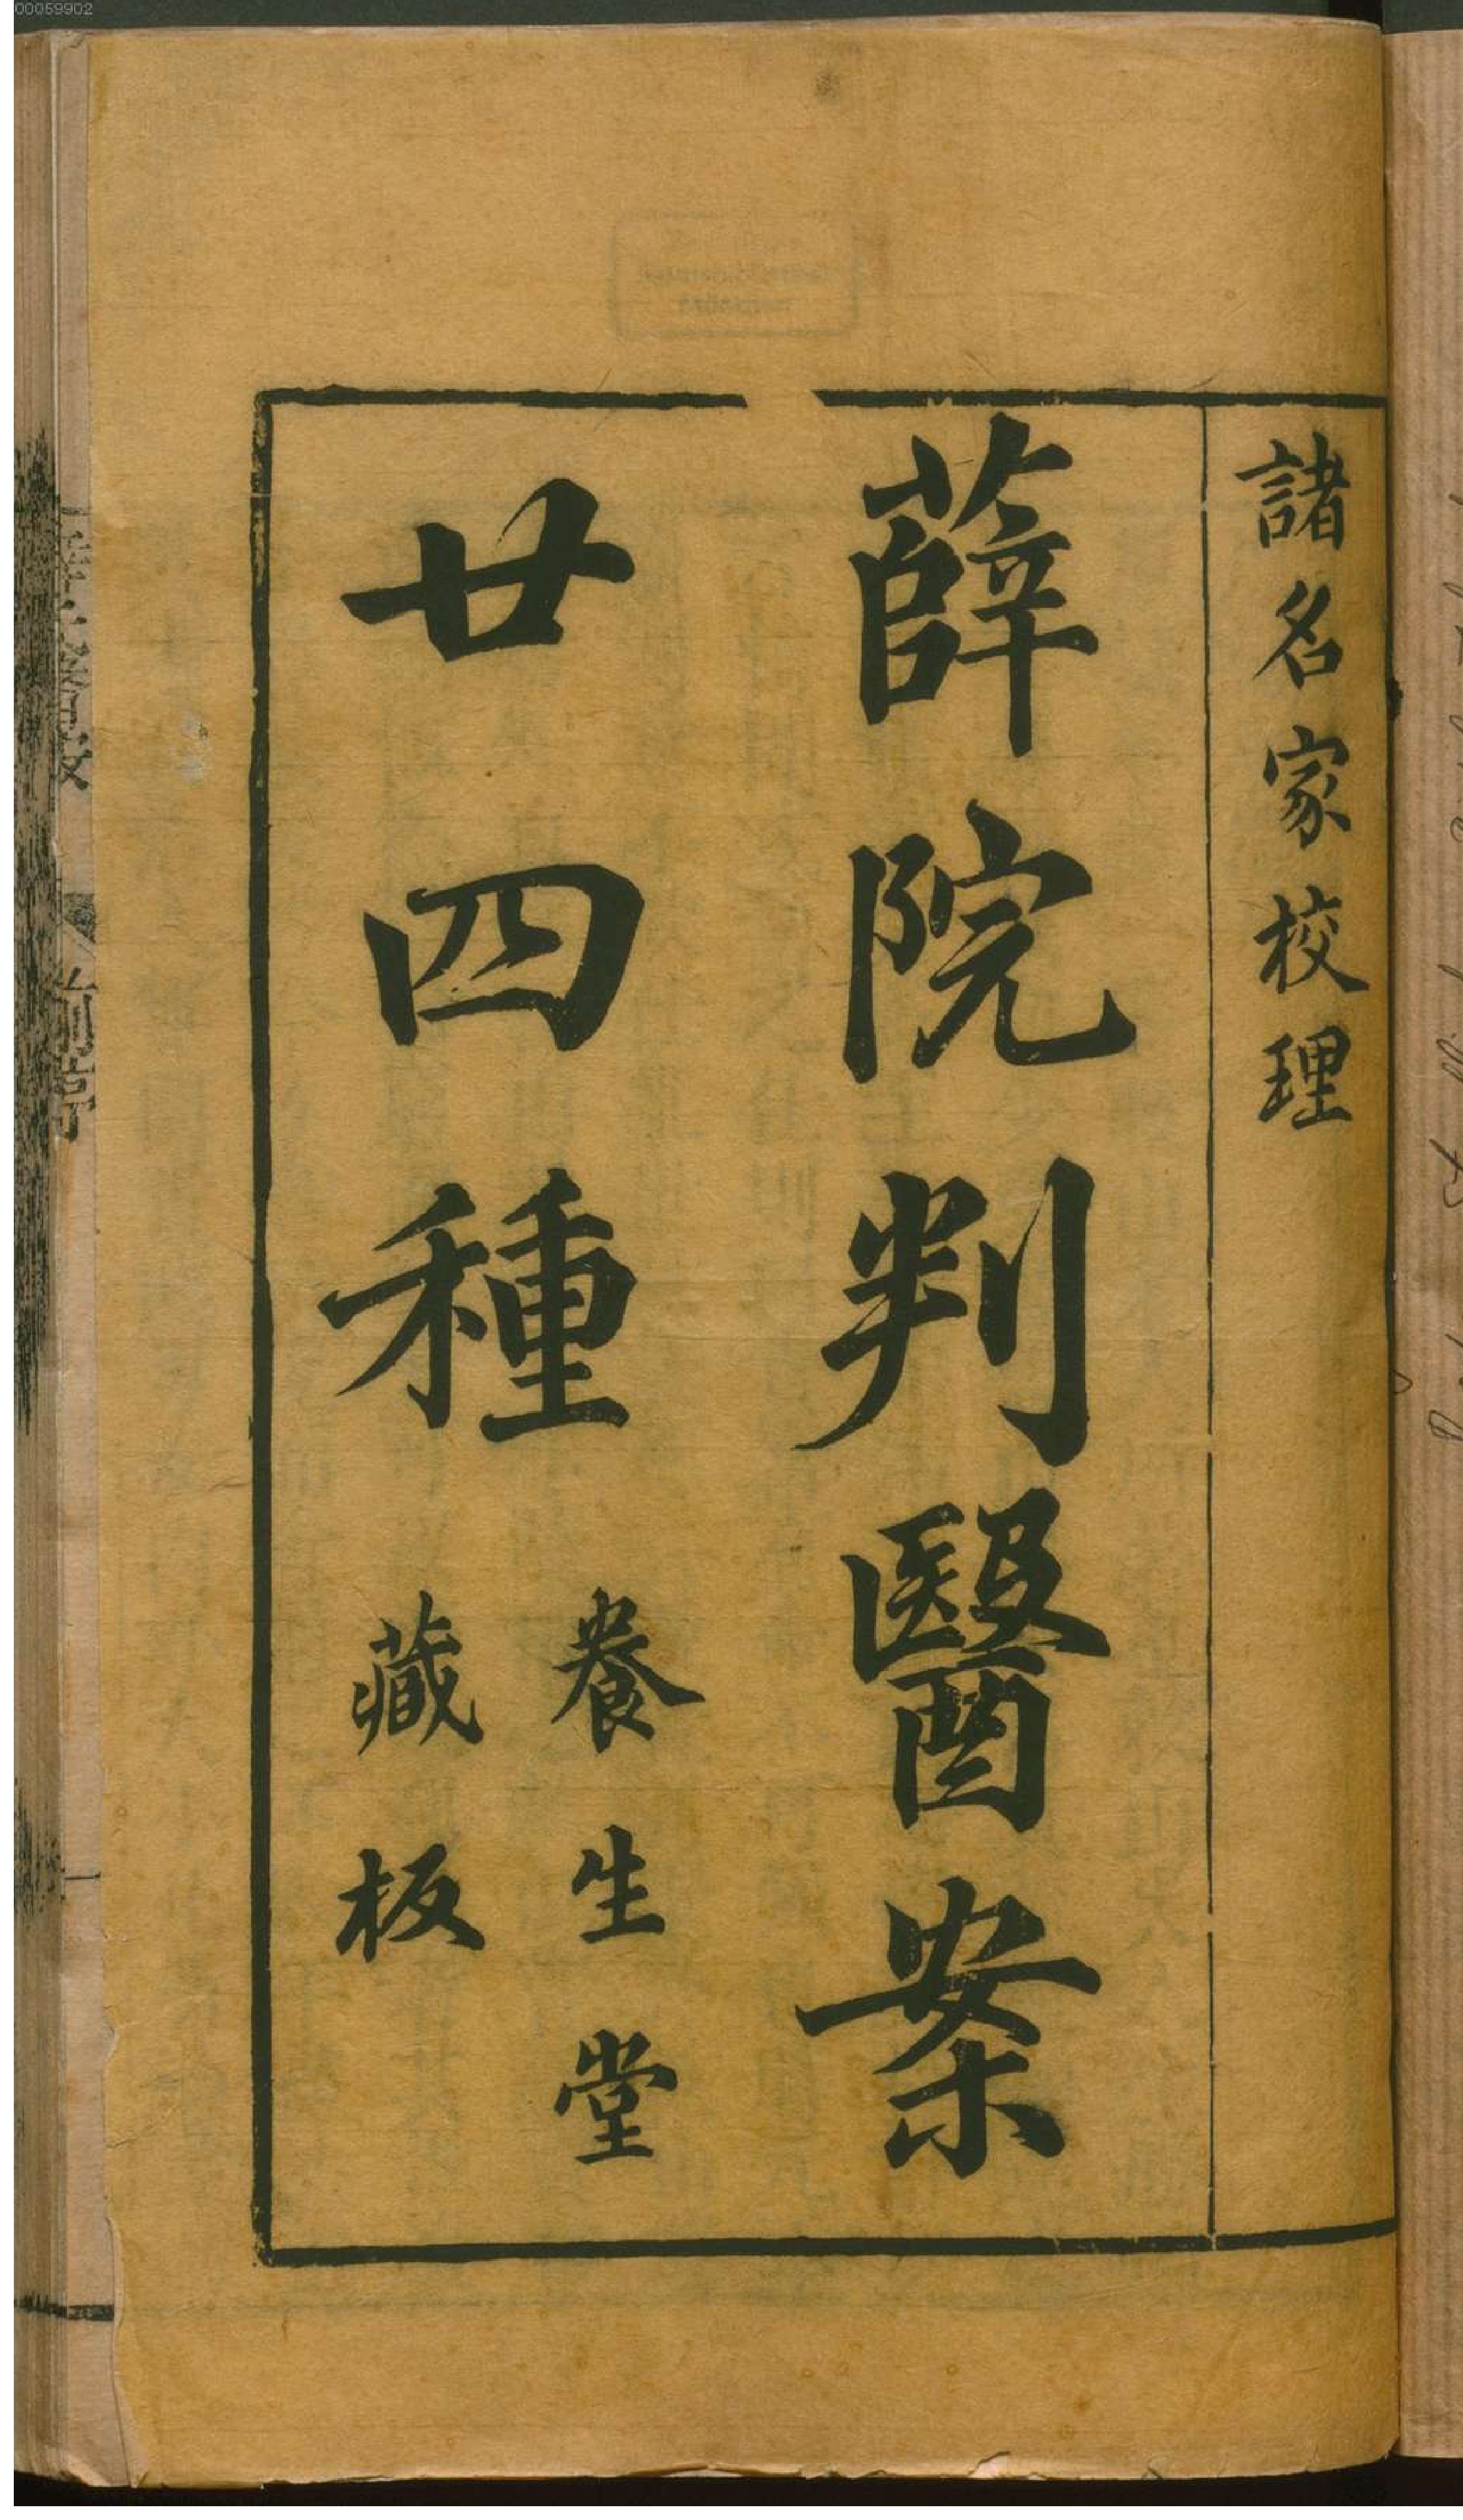 00059902
諸名家校理
薛院判醫案
廿四種
養生堂
藏板